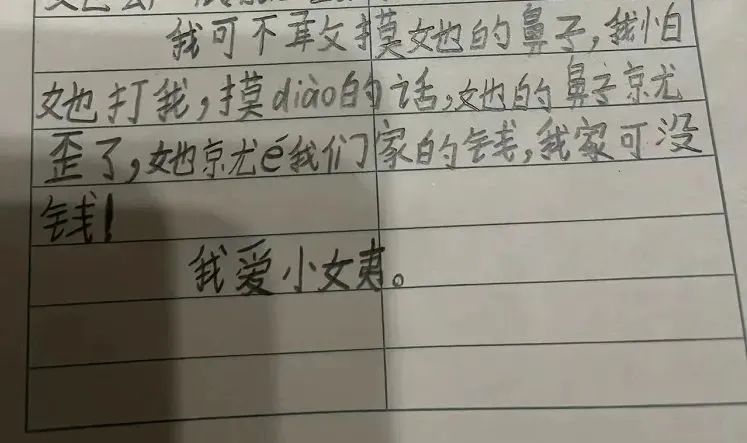 我可不敢摸她的鼻子,我怕
她打我,摸diào的话,她的鼻子就
歪了,她就é我们家的钱,我家可没
钱!
我爱小姨。